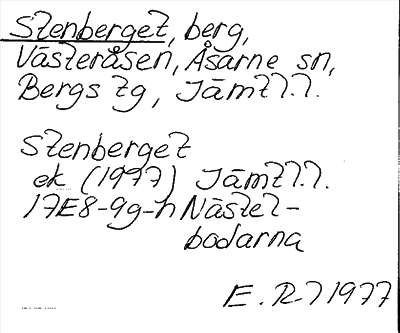 Stenberget, berg,
Västeråsen, Åsarne sn,
Bergs tg, Jämtl.
Stenberget
ek (1977) Jämtl.
17E8-9g-h Nästel-
bodarna
E. R-l 1977